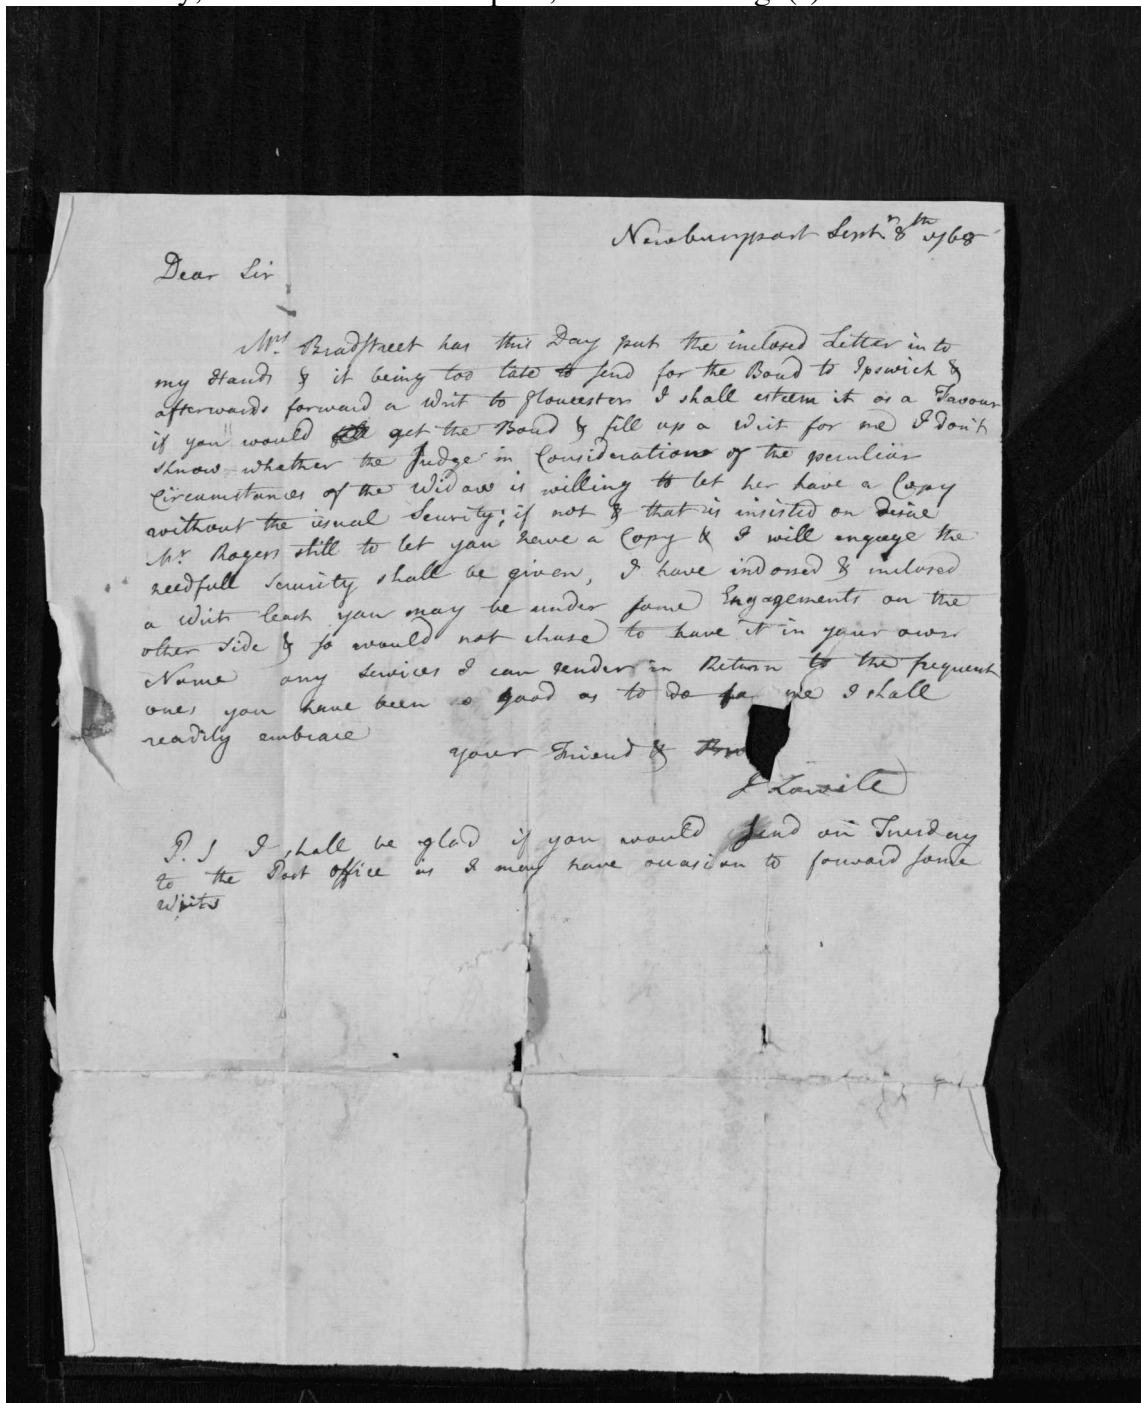 Newburyport Septr 8th 1768
Dear Sir
Mrs Bradstreet has this Day put the inclosed Letter into
my Hands & it being too late to send for the Bond to Ipswich &
afterwards forward a Writ to Gloucester I shall esteem it as a Favour
if you would get the Bond & fill up a Writ for me I don't
know whether the Judge in Consideration of the peculiar
Circumstances of the Widow is willing to let her have a Copy
without the usual Security; if not & that is insisted on desire
Mr Rogers still to let you have a Copy & I will engage the
needfull Security shall be given, I have indorsed & inclosed
a Writ least you may be under some Engagements on the
other side & so would not chuse to have it in your own
Name any services I can render in Return to the frequent
ones you have been so good as to do for me I shall
readily embrace
your Friend &
J Lowell
P.S I shall be glad if you would send on Tuesday
to the Post office as I may have occasion to forward some
Writs